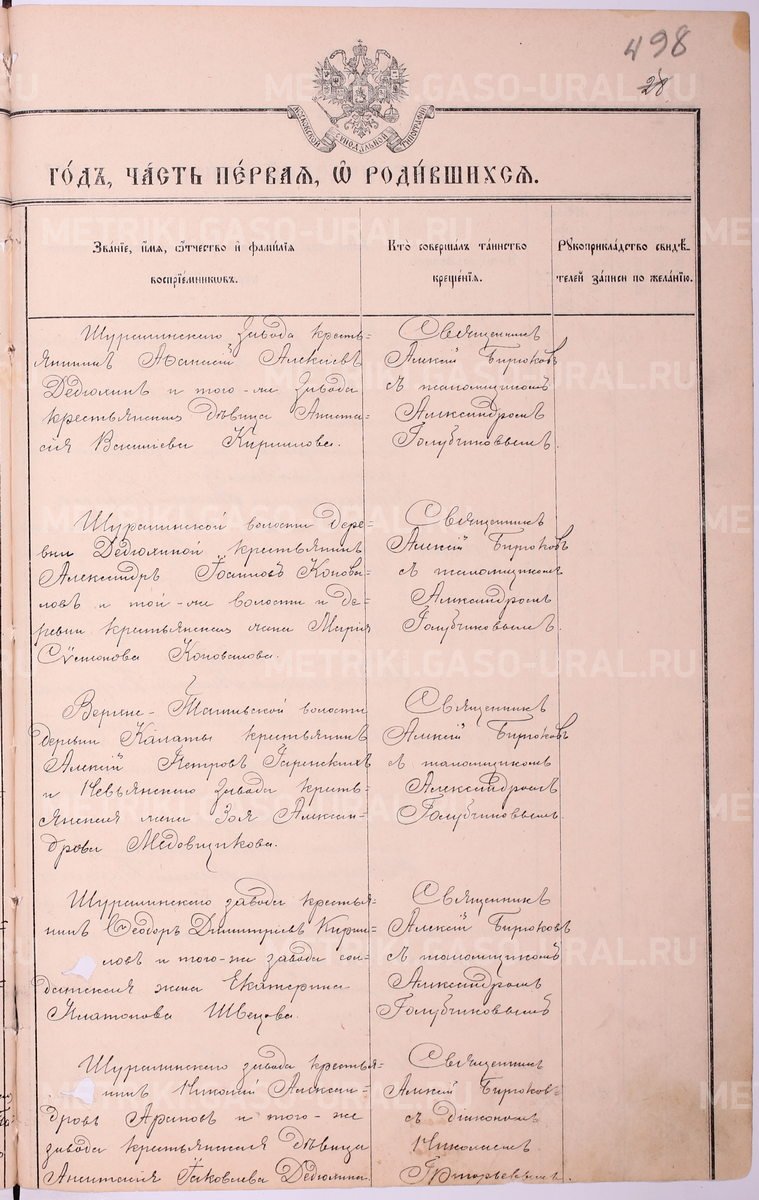 498
28
МОСКОВСКОЙ СѴНОДАЛЬНОЙ ТИПОГРАФІИ
ГО́ДЪ, ЧА́СТЬ ПЕ́РВАЯ, Ѿ РОДИ́ВШИХСЯ.
Зва́ніе, и҆́мя, ѻ҆́тчество и҆ фами́лія
воспріе́мникωвъ.
Кто̀ соверша́лъ та́инство
креще́нія.
Рꙋкоприкла́дство свидѣ́-
телей за́писи по жела́нію.
Шуралинскаго завода кресть-
янинъ Аѳанасій Алексѣевъ
Дедюхинъ и того-же завода
крестьянская дѣвица Анаста-
сія Васильева Кириллова.
Священникъ
Алексій Бирюковъ
съ псаломщикомъ
Александромъ
Голубчиковымъ.
Шуралинской волости дере-
вни Дедюхиной крестьянинъ
Александръ Іоанновъ Конова-
ловъ и той-же волости и де-
ревни крестьянская жена Марія
Сѵмеонова Коновалова.
Священникъ
Алексій Бирюковъ
съ псаломщикомъ
Александромъ
Голубчиковымъ.
Верхне-Тагильской волости
деревни Калаты крестьянинъ
Алексій Петровъ Гаренскихъ
и Невьянскаго завода кресть-
янская жена Зоя Алексан-
дрова Медовщикова.
Священникъ
Алексій Бирюковъ
съ псаломщикомъ
Александромъ
Голубчиковымъ.
Шуралинскаго завода крестья-
нинъ Ѳеодоръ Димитріевъ Кирил-
ловъ и того-же завода сол-
датская жена Екатерина
Платонова Швецова.
Священникъ
Алексій Бирюковъ
съ псаломщикомъ
Александромъ
Голубчиковымъ
Шуралинскаго завода крестья-
нинъ Николай Алексан-
дровъ Араповъ и того-же
завода крестьянская дѣвица
Анастасія Іаковлева Дедюхина.
Священникъ
Алексій Бирюковъ
съ діакономъ
Николаемъ
Григорьевымъ.
METRIKI.GASO-URAL.RU